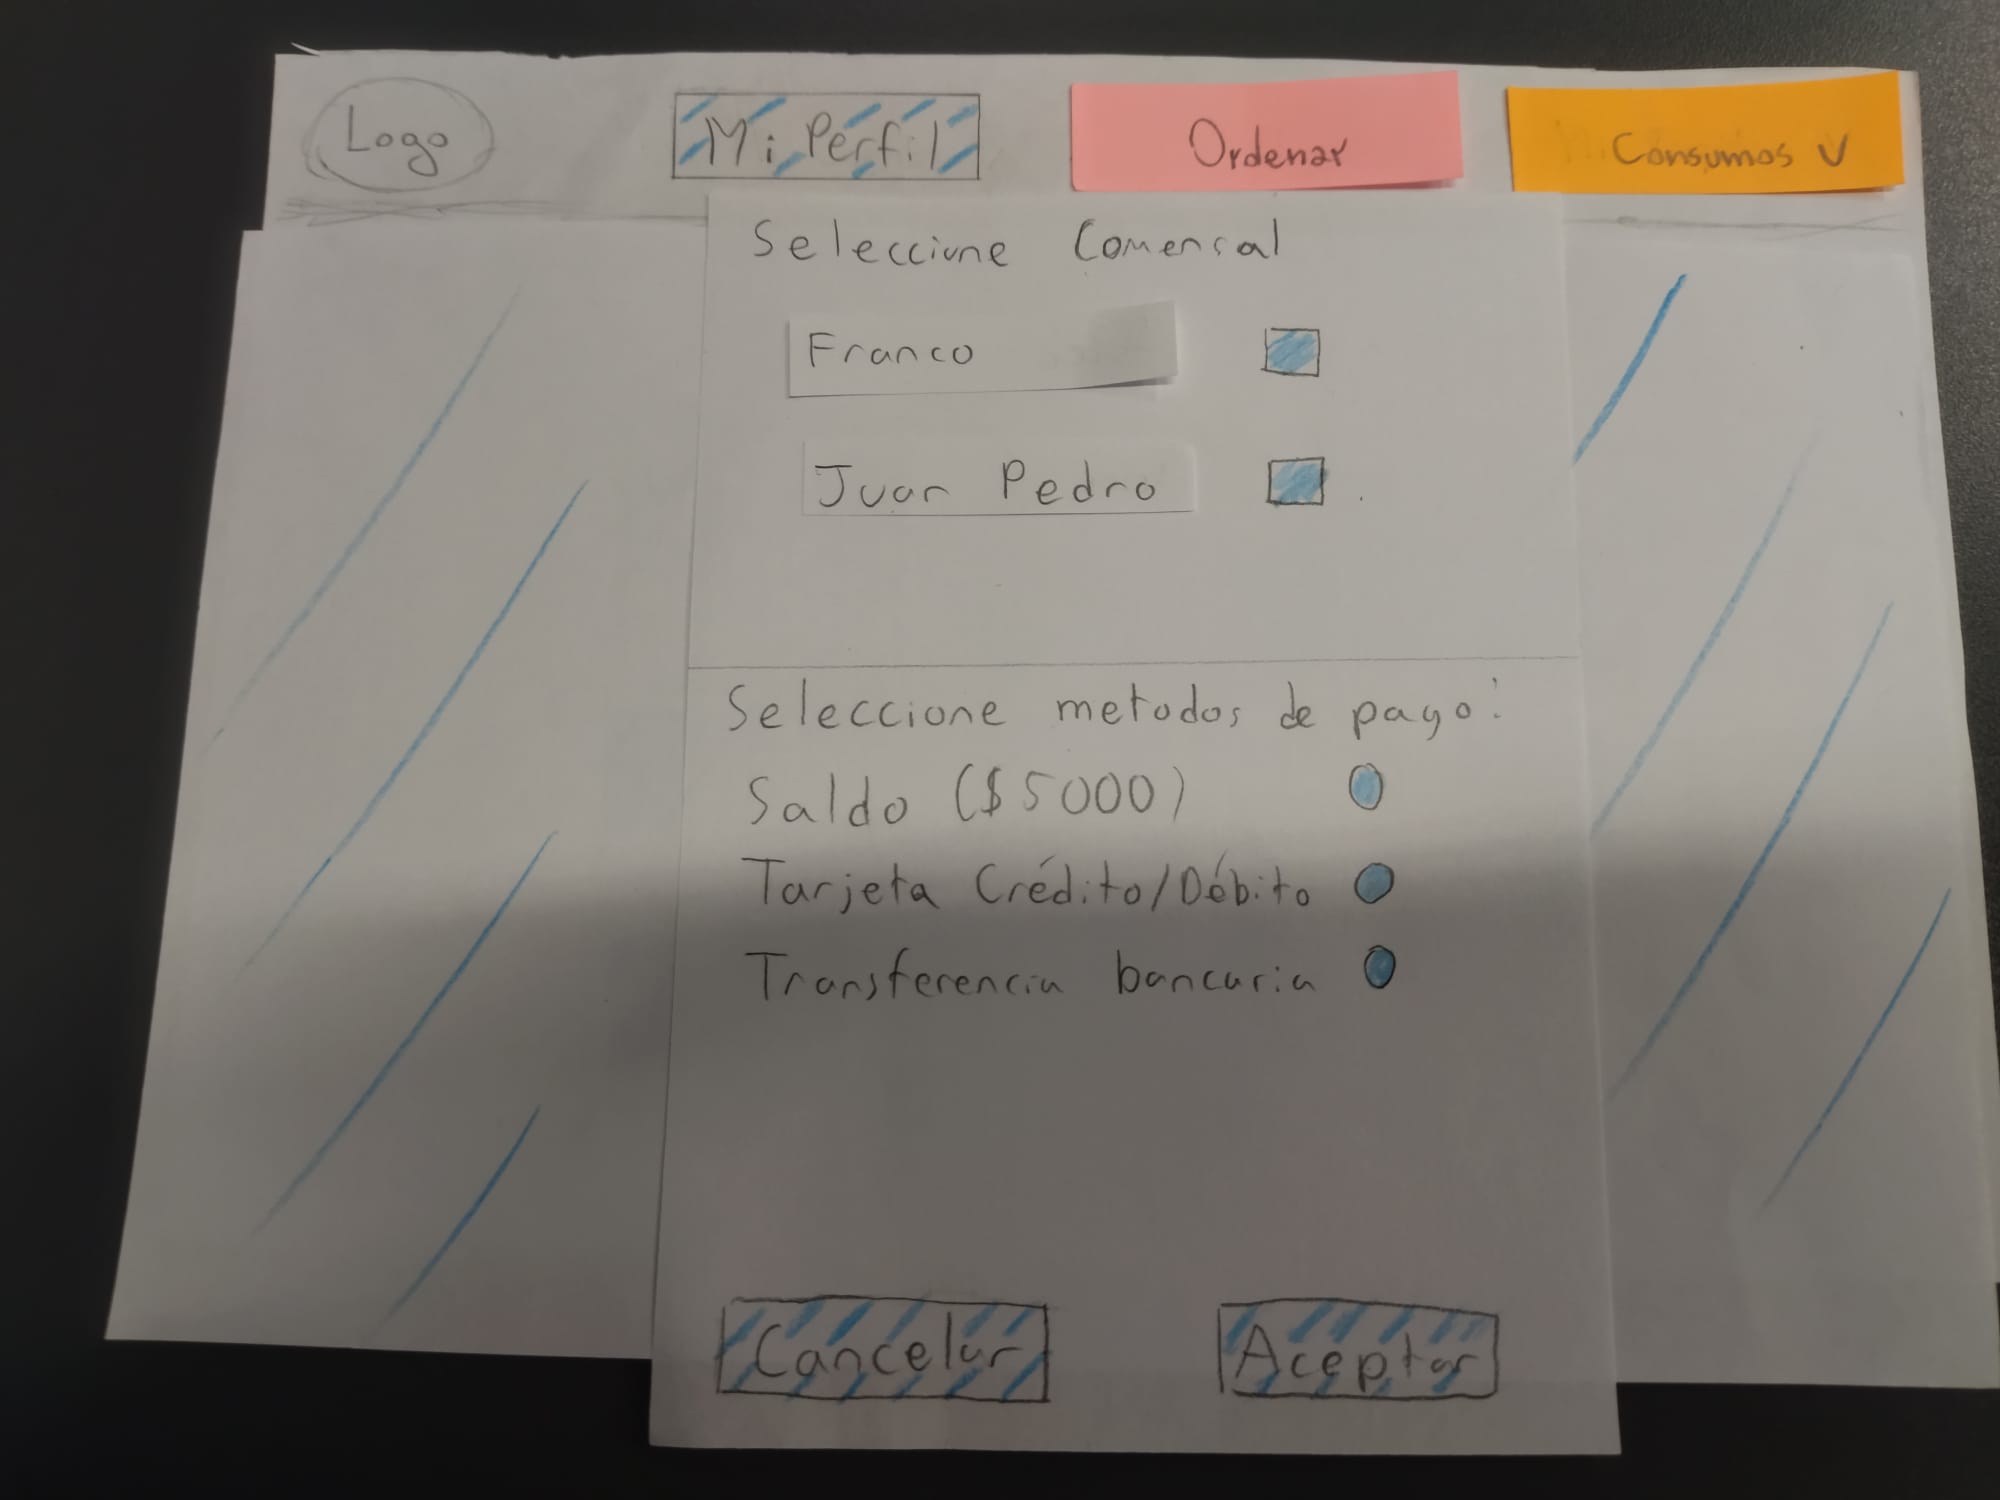 Logo
Mi Perfil
Ordenar
Consumos V
Seleccione Comensal
Franco
Juan Pedro
Seleccione metodos de pago:
Saldo ($5000)
Tarjeta Crédito/Débito
Transferencia bancaria
Cancelar
Aceptar